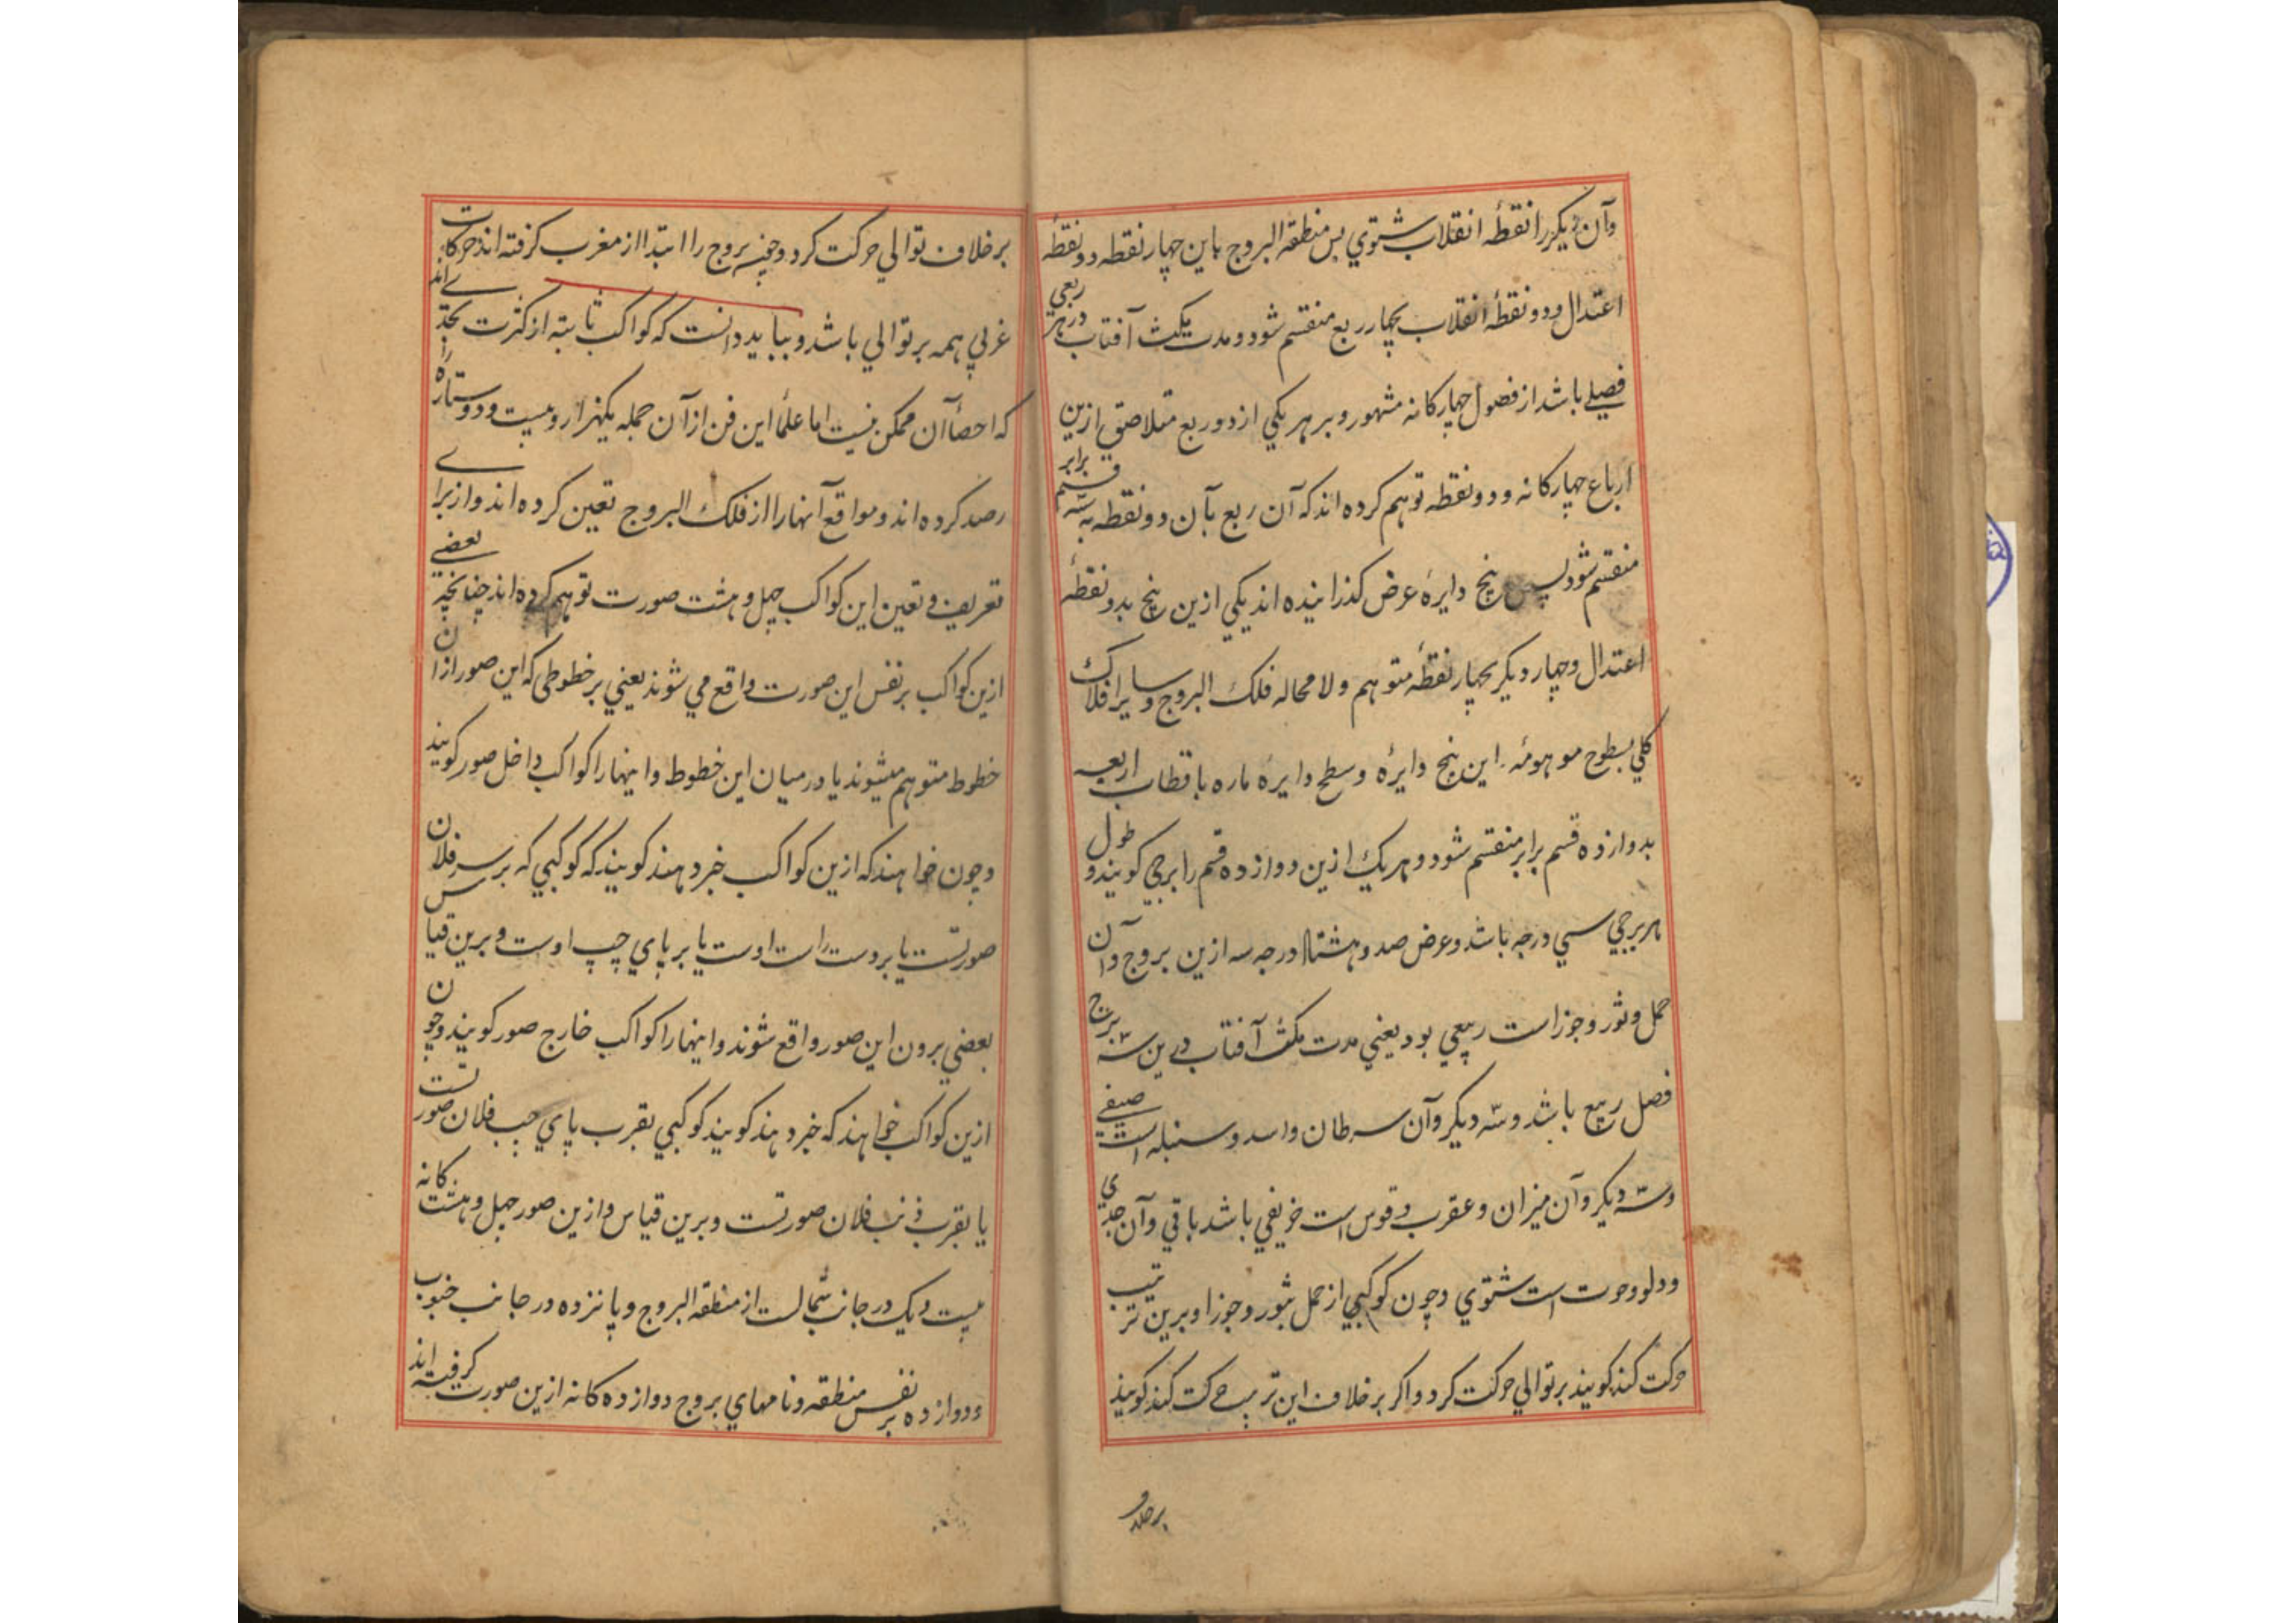 وآن دیکر را نقطهٔ انقلاب شتوي پس منطقه البروج باین چهار نقطه دو نقطه
اعتدال و دو نقطهٔ انقلاب بچهار ربع منقسم شود و مدت مکث آفتاب در هر ربعی
فصلے باشد از فصول چهارکانه مشهور و بر هر یکي از دو ربع متلاصق ازین
ارباع چهارکانه و دو نقطه توهم کرده اند که آن ربع بآن دو نقطه به سه قسم برابر
منقسم شود پس پنج دایرهٔ عرض کذرانیده اند یکي ازین پنج بدو نقطهٔ
اعتدال و چهار دیکر بچهار نقطهٔ متوهم ولا محاله فلک البروج و سایر افلاک
کلي بسطوح موهومهٔ این پنج دایرهٔ وسطح دایرهٔ ماره باقطاب اربعه
بدوازده قسم برابر منقسم شود و هر یک ازین دوازده قسم را برجي کویند و طول
هر برجي سي درجه باشد وعرض صد و هشتاد درجه سه ازین بروج وآن
حمل وثور وجوزا است ربیعي بود یعني مدت مکث آفتاب درین سه برج
فصل ربیع باشد وسه دیکر وآن سرطان واسد وسنبله است صیفے
وسه دیکر وآن میزان وعقرب وقوس است خریفي باشد باقي وآن جدي
ودلو وحوت است شتوي وچون کوکبي از حمل بثور وجوزا وبرین ترتیب
حرکت کند کویند بر توالي حرکت کرد واکر بر خلاف این ترتیب حرکت کند کویند
بر خلاف
بر خلاف توالي حرکت کرد وچون بروج را ابتدا از مغرب کرفته اند حرکات
غربي همه بر توالي باشد و بباید دانست که کواکب ثابته از کثرت بحدے اند
که احصأ آن ممکن نیست اما علمأ این فن از آن جمله یکهزار و بیست و دو ستاره را
رصد کرده اند و مواقع آنها را از فلک البروج تعین کرده اند و از براے
تعریف و تعین این کواکب چهل و هشت صورت توهم کرده اند چنانچه بعضے
ازین کواکب بر نفس این صورت واقع مي شوند یعني بر خطوطی که این صور از ان
خطوط متوهم میشوند یا در میان این خطوط و اینها را کواکب داخل صور کویند
وچون خواهند که ازین کواکب خبر دهند کویند که کوکبي که بر سر فلان
صورتست یا بر دست راست اوست یا بر پاي چپ اوست و برین قیاس
بعضي برون این صور واقع شوند و اینها را کواکب خارج صور کویند وچون
ازین کواکب خواهند که خبر دهند کویند کوکبي بقرب پاي چپ فلان صورتست
یا بقرب ذنب فلان صورتست و برین قیاس و ازین صور چهل و هشت کانه
بیست و یک در جانب شمالست از منطقه البروج و پانزده در جانب جنوب
ودوازده بر نفس منطقه و نامهاي بروج دوازده کانه ازین صورت کرفته اند